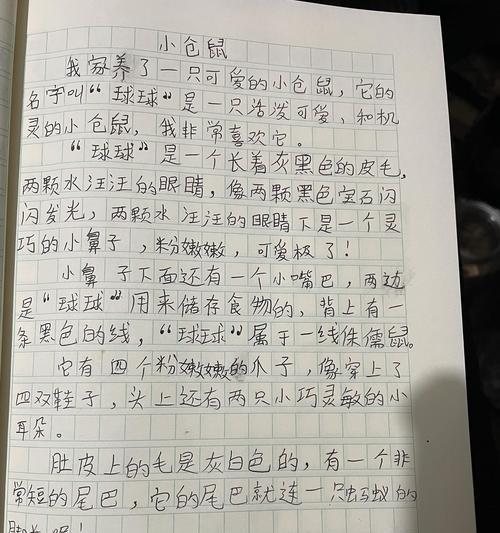 小仓鼠
我家养了一只可爱的小仓鼠，它的
名字叫“球球”是一只活泼可爱、和机
灵的小仓鼠，我非常喜欢它。
“球球”是一个长着灰黑色的皮毛，
两颗水汪汪的眼睛，像两颗黑色宝石闪
闪发光，两颗水汪汪的眼睛下是一个灵
巧的小鼻子，粉嫩嫩，可爱极了！
小鼻子下面还有一个小嘴巴，两边
是“球球”用来储存食物的，背上有一
条黑色的线，“球球”属于一线侏儒鼠。
它有四个粉嫩嫩的爪子，像穿上了
四双鞋子，头上还有两只小巧灵敏的小
耳朵。
肚皮上的毛是灰白色的，有一个非
常短的尾巴，它的尾巴就连一只蚂蚁的